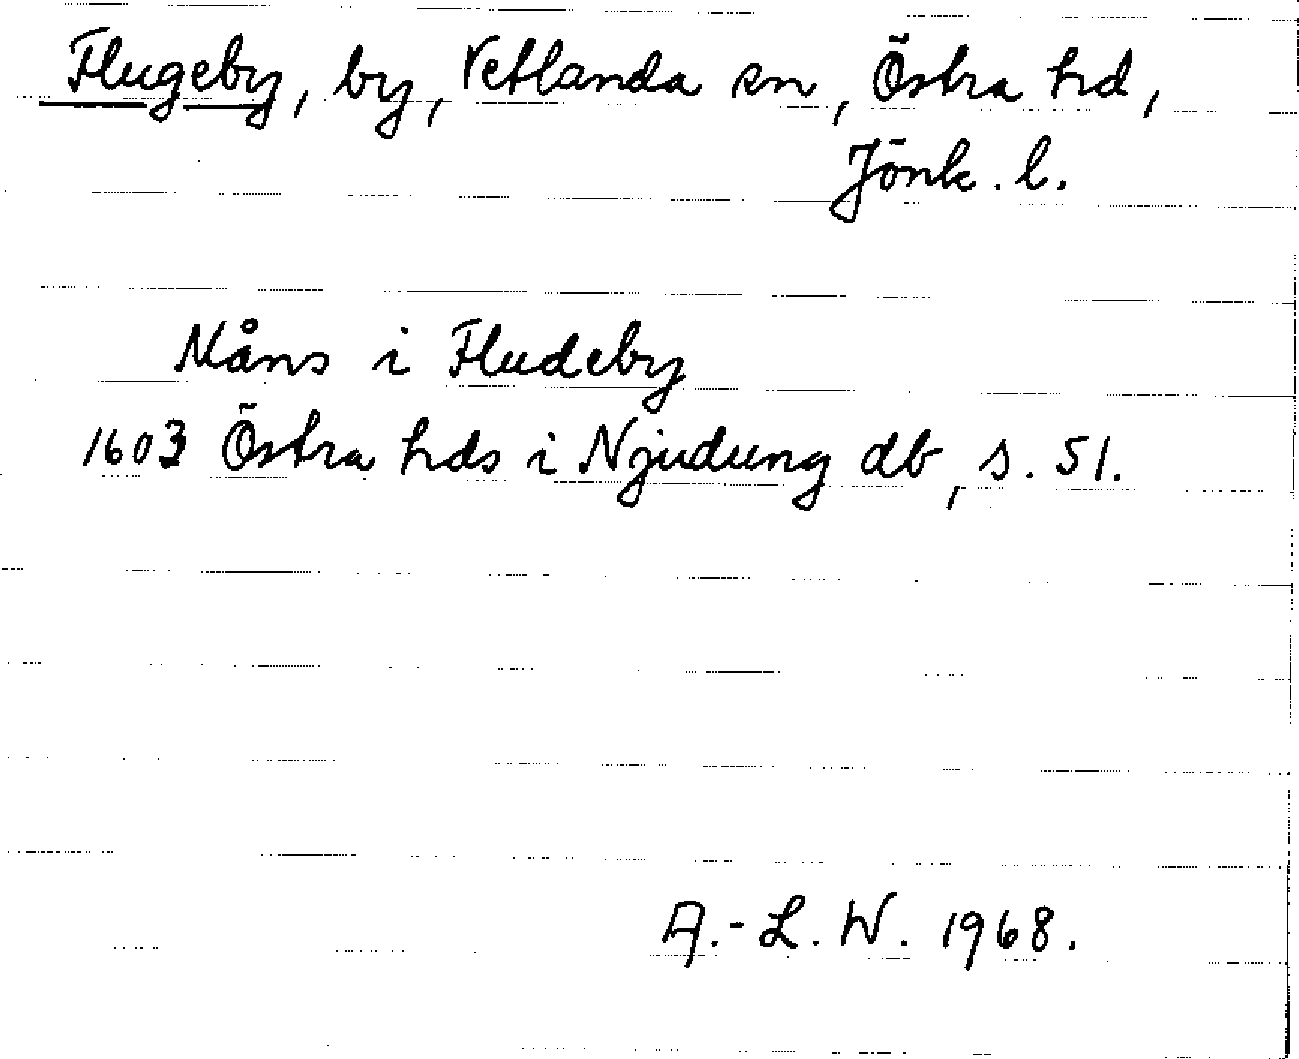 Flugeby, by, Vetlanda sn, Östra hd,
Jönk. l.
Måns i Fludeby
1603 Östra hds i Njudung db, s. 51.
A.-L. W. 1968.